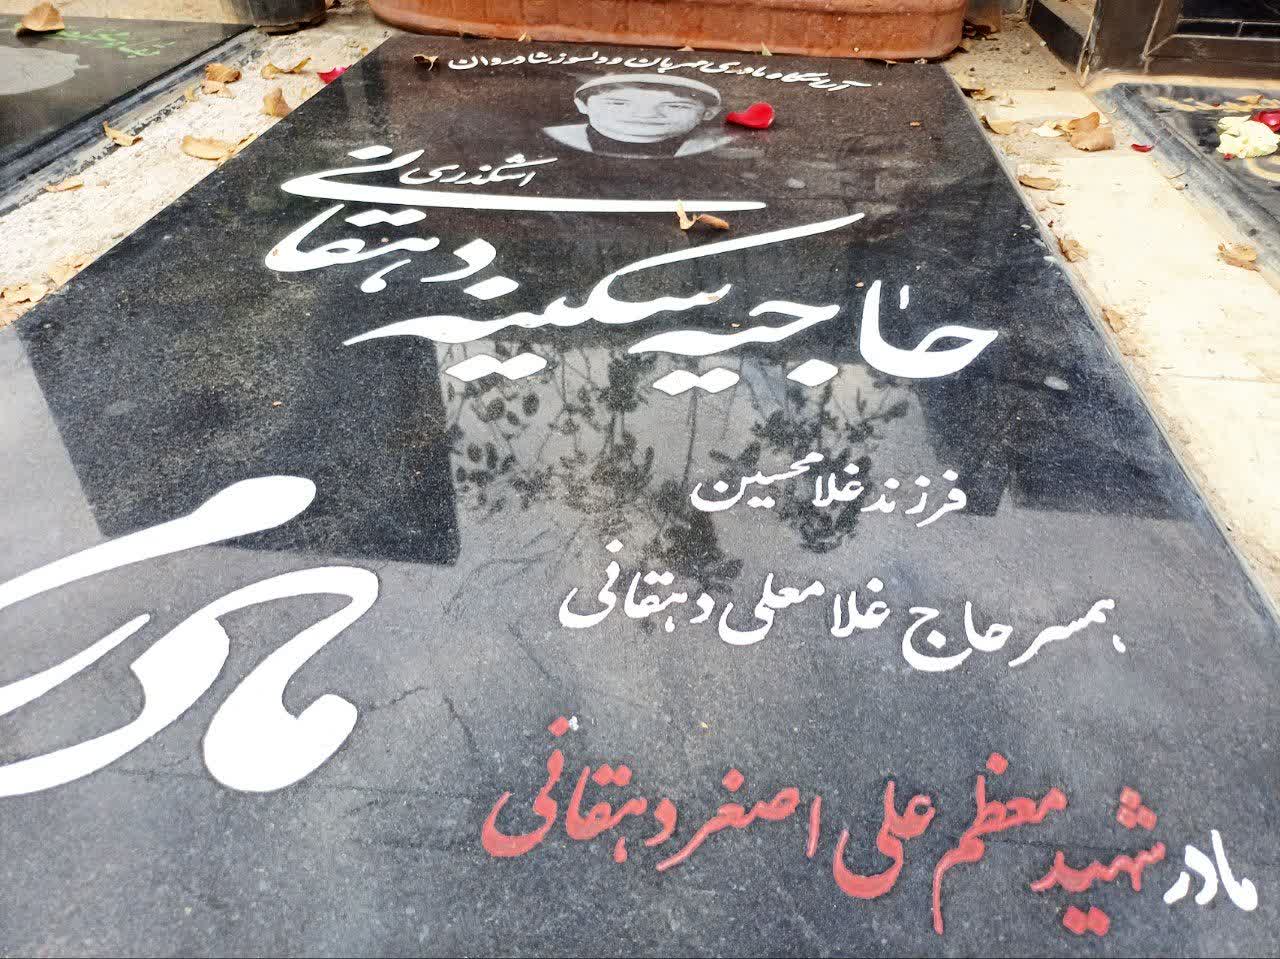 آرامگاه مادری مهربان و دلسوز شادروان
حاجیه سکینه دهقانی
اشکذری
فرزند غلامحسین
همسر حاج غلامعلی دهقانی
مادر شهید معظم علی اصغر دهقانی
مادر